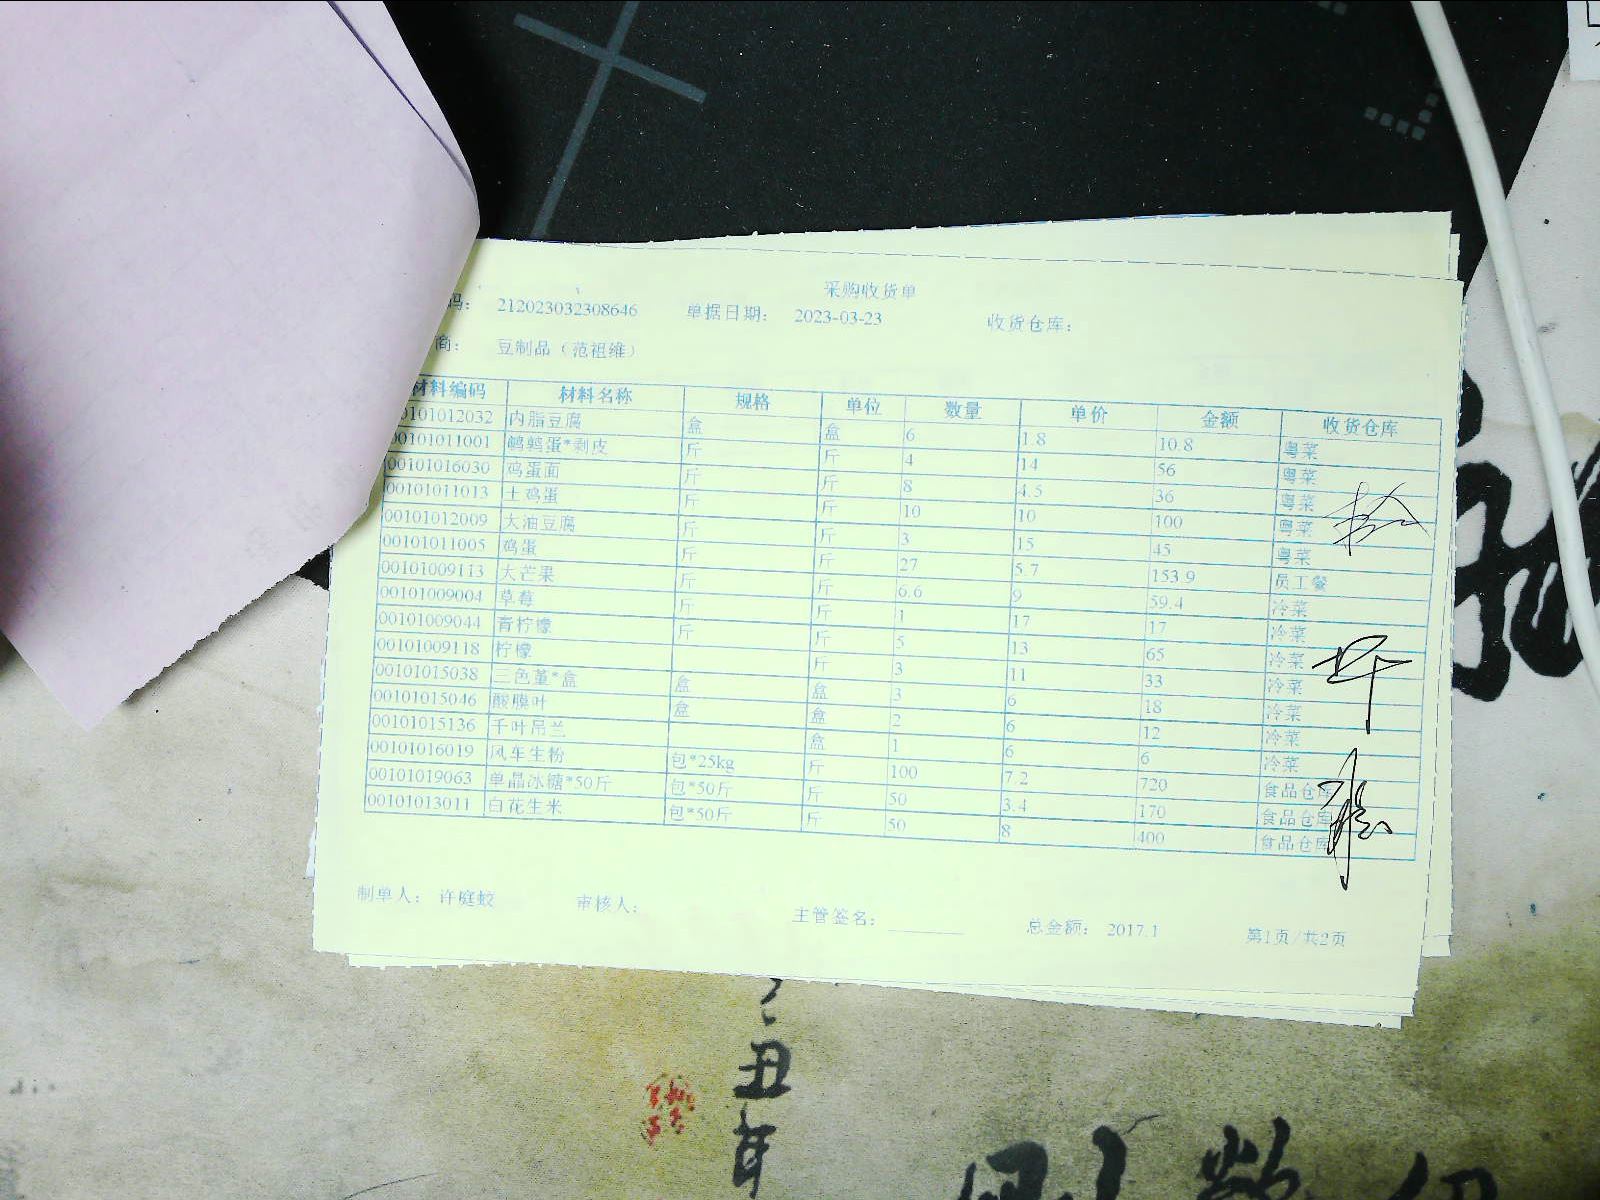 采购收货单
码： 212023032308646 单据日期： 2023-03-23 收货仓库：
商： 豆制品（范祖维）
材料编码 材料名称 规格 单位 数量 单价 金额 收货仓库
0101012032 内脂豆腐 盒 盒 6 1.8 10.8 粤菜
00101011001 鹌鹑蛋*剥皮 斤 斤 4 14 56 粤菜
00101016030 鸡蛋面 斤 斤 8 4.5 36 粤菜
00101011013 土鸡蛋 斤 斤 10 10 100 粤菜
00101012009 大油豆腐 斤 斤 3 15 45 粤菜
00101011005 鸡蛋 斤 斤 27 5.7 153.9 员工餐
00101009113 大芒果 斤 斤 6.6 9 59.4 冷菜
00101009004 草莓 斤 斤 1 17 17 冷菜
00101009044 青柠檬 斤 斤 5 13 65 冷菜
00101009118 柠檬 斤 3 11 33 冷菜
00101015038 三色堇*盒 盒 盒 3 6 18 冷菜
00101015046 酸膜叶 盒 盒 2 6 12 冷菜
00101015136 千叶吊兰 盒 1 6 6 冷菜
00101016019 风车生粉 包*25kg 斤 100 7.2 720 食品仓库
00101019063 单晶冰糖*50斤 包*50斤 斤 50 3.4 170 食品仓库
00101013011 白花生米 包*50斤 斤 50 8 400 食品仓库
制单人： 许庭蛟 审核人： 主管签名： 总金额： 2017.1 第1页/共2页
丑
年